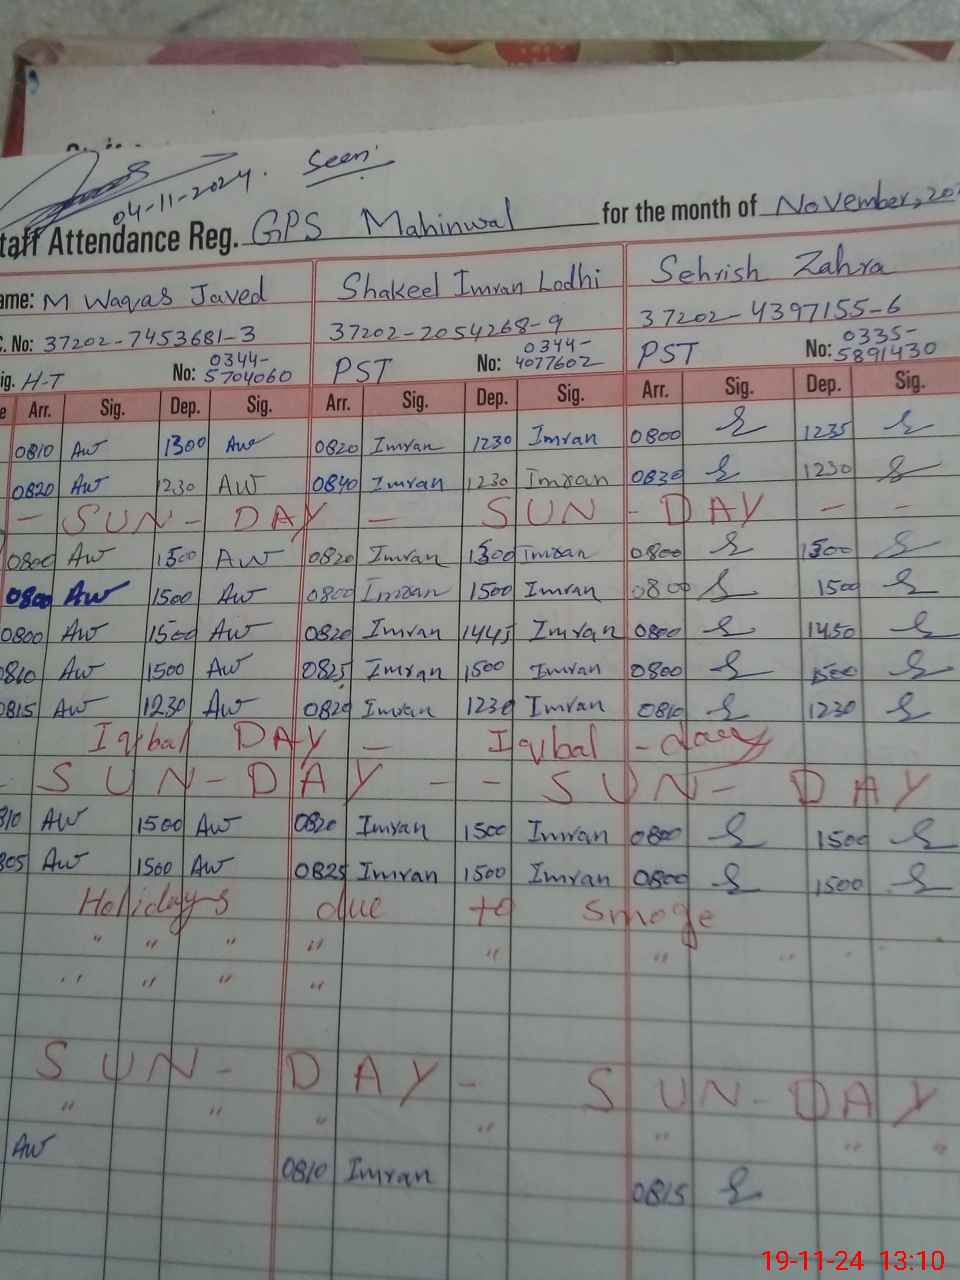 Seen
04-11-2024.
taff Attendance Reg. GPS Mahinwal for the month of November, 20
ame: M Waqas Javed Shakeel Imran Lodhi Sehrish Zahra
C. No: 37202-7453681-3 37202-2054268-9 37202-4397155-6
ig. H-T No: 0344-5704060 PST No: 0344-4077602 PST No: 0335-5891430
e Arr. Sig. Dep. Sig. Arr. Sig. Dep. Sig. Arr. Sig. Dep. Sig.
0810 AW 1300 AW 0820 Imran 1230 Imran 0800 1235
0820 AW 1230 AW 0840 Imran 1230 Imran 0830 1230
- SUN - DAY - SUN - DAY - -
0800 AW 1500 AW 0820 Imran 1500 Imran 0800 1500
0800 AW 1500 AW 0800 Imran 1500 Imran 0800 1500
0800 AW 1500 AW 0820 Imran 1445 Imran 0800 1450
0810 AW 1500 AW 0825 Imran 1500 Imran 0800 1500
0815 AW 1230 AW 0820 Imran 1230 Imran 0810 1230
Iqbal DAY - Iqbal - day
- SUN - DAY - - SUN - DAY
810 AW 1500 AW 0820 Imran 1500 Imran 0800 1500
805 AW 1500 AW 0825 Imran 1500 Imran 0800 1500
Holidays due to Smoge
" " " " " " " "
" " " "
SUN - DAY - SUN - DAY
" " " " " " "
AW 0810 Imran 0815
19-11-24 13:10